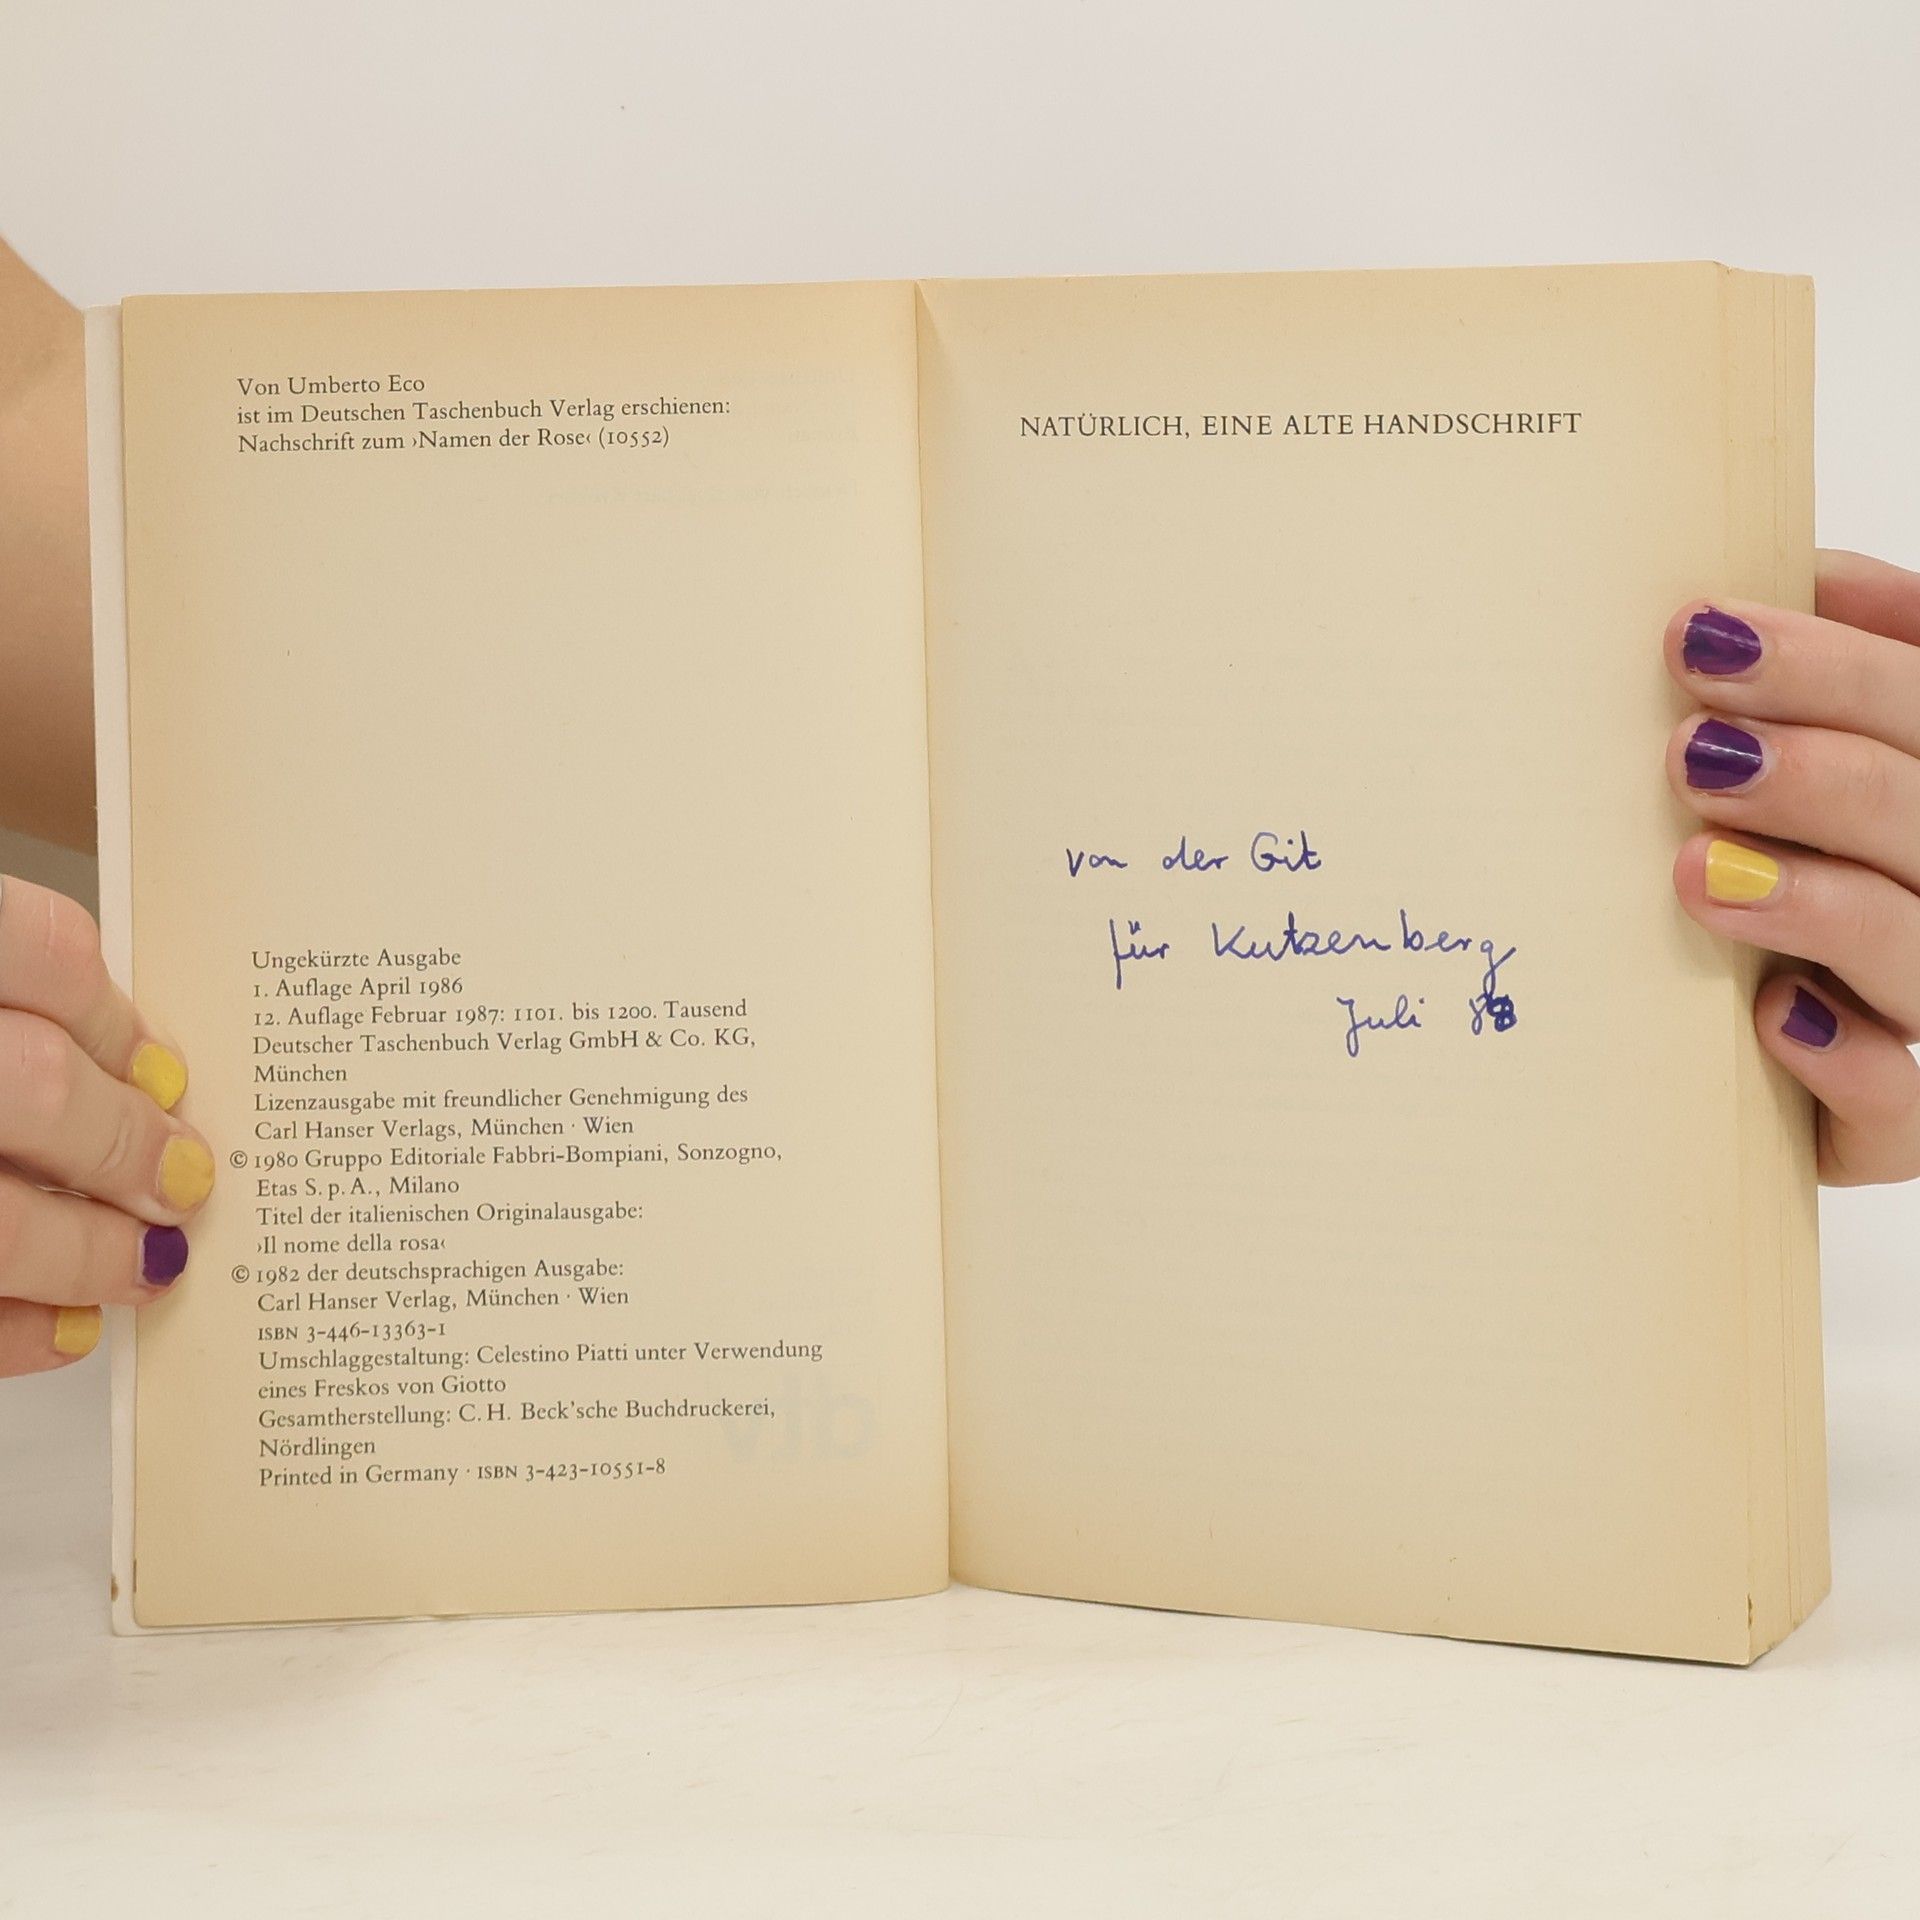 Von Umberto Eco
ist im Deutschen Taschenbuch Verlag erschienen:
Nachschrift zum ›Namen der Rose‹ (10552)
Ungekürzte Ausgabe
1. Auflage April 1986
12. Auflage Februar 1987: 1101. bis 1200. Tausend
Deutscher Taschenbuch Verlag GmbH & Co. KG,
München
Lizenzausgabe mit freundlicher Genehmigung des
Carl Hanser Verlags, München · Wien
© 1980 Gruppo Editoriale Fabbri-Bompiani, Sonzogno,
Etas S. p. A., Milano
Titel der italienischen Originalausgabe:
›Il nome della rosa‹
© 1982 der deutschsprachigen Ausgabe:
Carl Hanser Verlag, München · Wien
ISBN 3-446-13363-1
Umschlaggestaltung: Celestino Piatti unter Verwendung
eines Freskos von Giotto
Gesamtherstellung: C. H. Beck'sche Buchdruckerei,
Nördlingen
Printed in Germany · ISBN 3-423-10551-8
NATÜRLICH, EINE ALTE HANDSCHRIFT
von der Git
für Kutzenberg
Juli